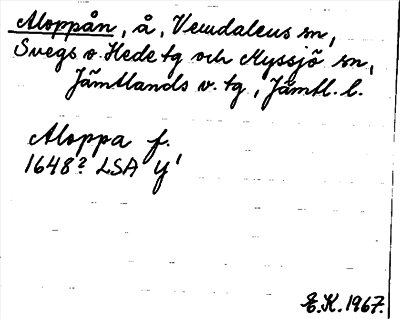 Aloppån, å, Vemdalens sn,
Svegs o. Hede tg och Myssjö sn,
Jämtlands v. tg, Jämtl. l.
Aloppa f.
1648? LSA Y¹
E.K. 1967.